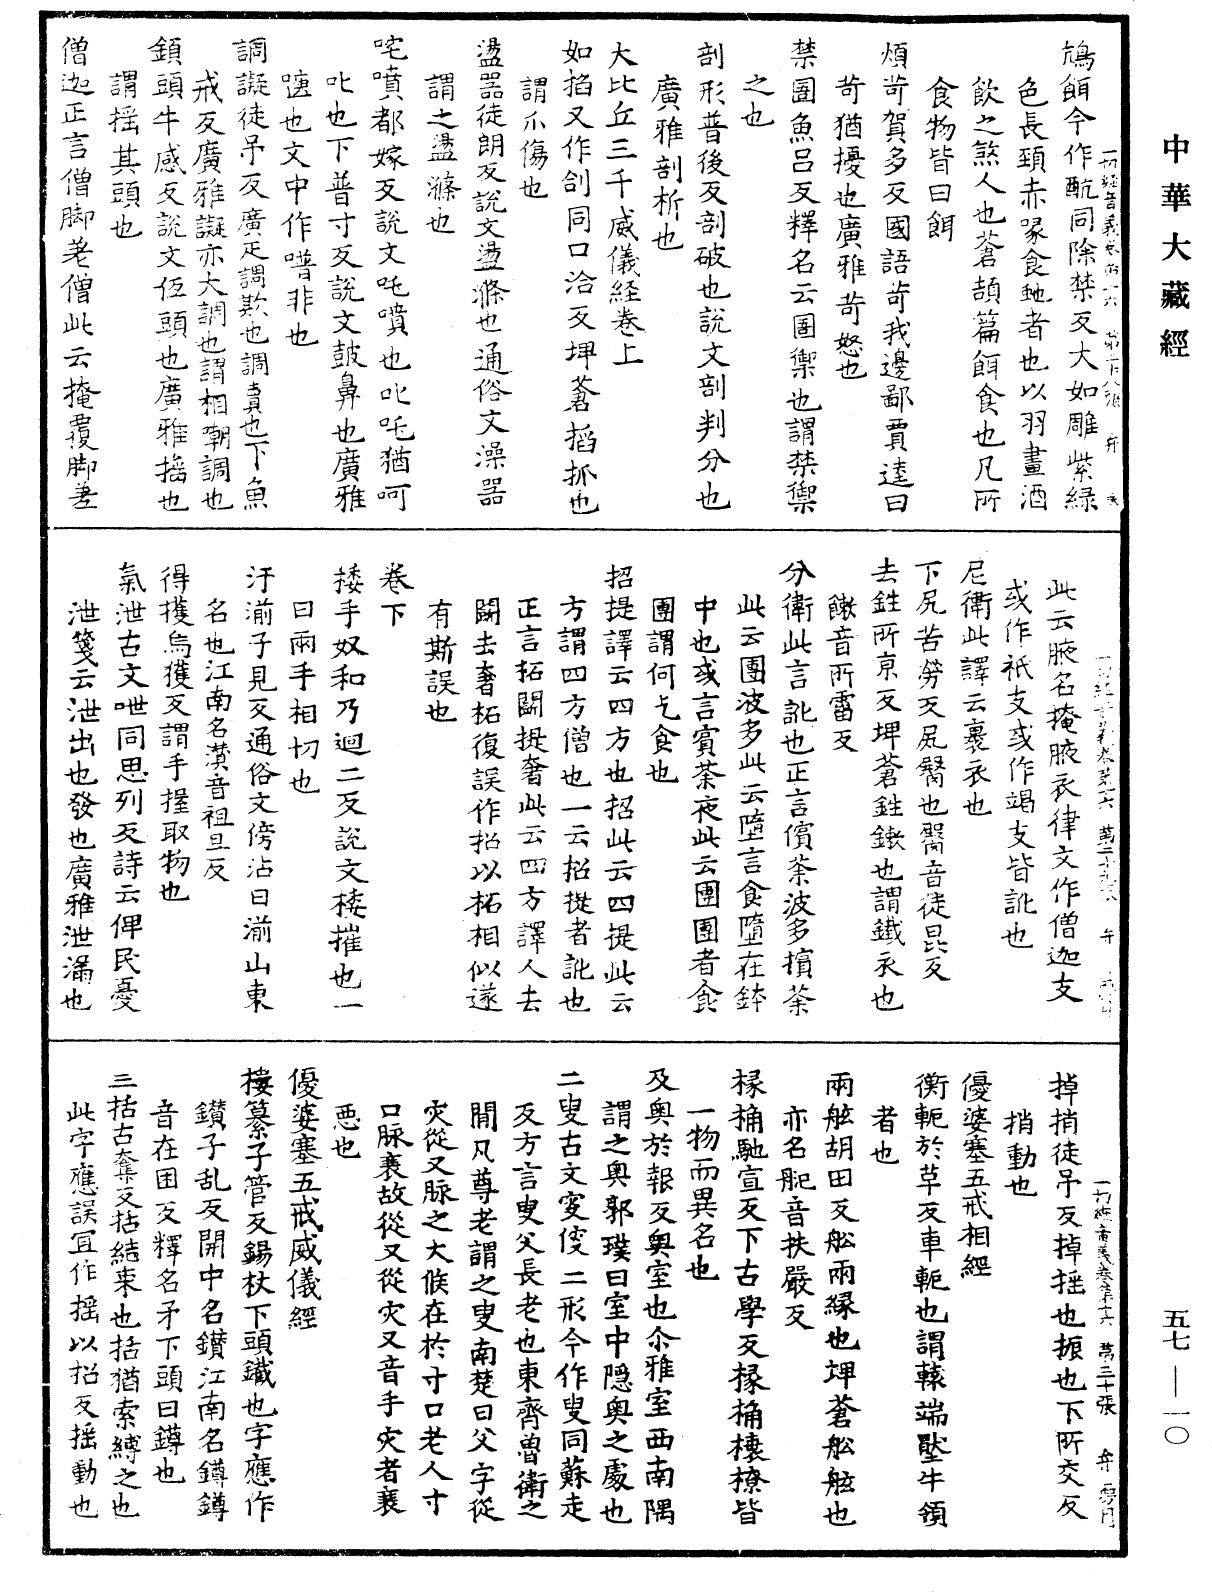 中華大藏經
鴆餌今作酖同除禁反大如雕紫緑
色長頸赤喙食虵者也以羽畫酒
飲之煞人也蒼頡篇餌食也凡所
食物皆曰餌
煩苛賀多反國語苛我邊鄙賈逵曰
苛猶擾也廣雅苛怒也
禁圄魚呂反釋名云圄禦也謂禁禦
之也
剖形普後反剖破也說文剖判分也
廣雅剖析也
大比丘三千威儀経卷上
如掐又作㓣同口洽反埤蒼掐抓也
謂爪傷也
盪器徒朗反說文盪滌也通俗文澡器
謂之盪滌也
咤噴都嫁反說文吒噴也叱吒猶呵
叱也下普寸反說文鼓鼻也廣雅
嚏也文中作噃非也
調譺徒吊反廣疋調欺也調賣也下魚
戒反廣雅譺亦大調也謂相嘲調也
頷頭牛感反說文伍頭也廣雅搖也
謂摇其頭也
僧迦正言僧脚差僧此云掩覆脚差
一切經音義卷第十六 第二十九張 弁
此云腋名掩腋衣律文作僧迦支
或作祇支或作竭支皆訛也
尼衛此譯云裹衣也
下尻苦勞反尻臋也臋音徒昆反
去鉎所京反埤蒼鉎鏉也謂鐵衣也
鏉音所霤反
分衛此言訛也正言儐荼波多擯荼
此云團波多此云墮言食墮在鉢
中也或言賓荼夜此云團團者食
團謂何乞食也
招提譯云四方也招此云四提此云
方謂四方僧也一云招提者訛也
正言拓鬭提奢此云四方譯人去
鬭去奢拓復誤作招以柘相似遂
有斯誤也
卷下
捼手奴和乃迴二反說文捼摧也一
曰兩手相切也
汙湔子見反通俗文傍沾曰湔山東
名也江南名灒音祖旦反
得擭烏獲反謂手握取物也
氣泄古文呭同思列反詩云俾民憂
泄箋云泄出也發也廣雅泄漏也
一切經音義卷第十六 第三十張 弁
掉捎徒吊反掉摇也振也下所交反
捎動也
優婆塞五戒相經
衡軛於草反車軛也謂轅端壓牛領
者也
兩舷胡田反舩兩縁也埤蒼舩舷也
亦名舥音扶嚴反
椽桷馳宣反下古學反椽桷榱橑皆
一物而異名也
及奥於報反奥室也尒雅室西南隅
謂之奥郭璞曰室中隱奥之處也
二叟古文㕙傁二形今作叟同蘇走
反方言叟父長老也東齊魯衛之
間凡尊老謂之叟南楚曰父字從
灾從又脉之大候在於寸口老人寸
口脉衰故從又從灾又音手灾者衰
惡也
優婆塞五戒威儀經
㩲纂子管反錫杖下頭鐵也字應作
鑽子乱反關中名鑽江南名鐏鐏
音在困反釋名矛下頭曰鐏也
三括古奪反括結束也括猶索縛之也
此字應誤冝作摇以招反摇動也
五七—一〇